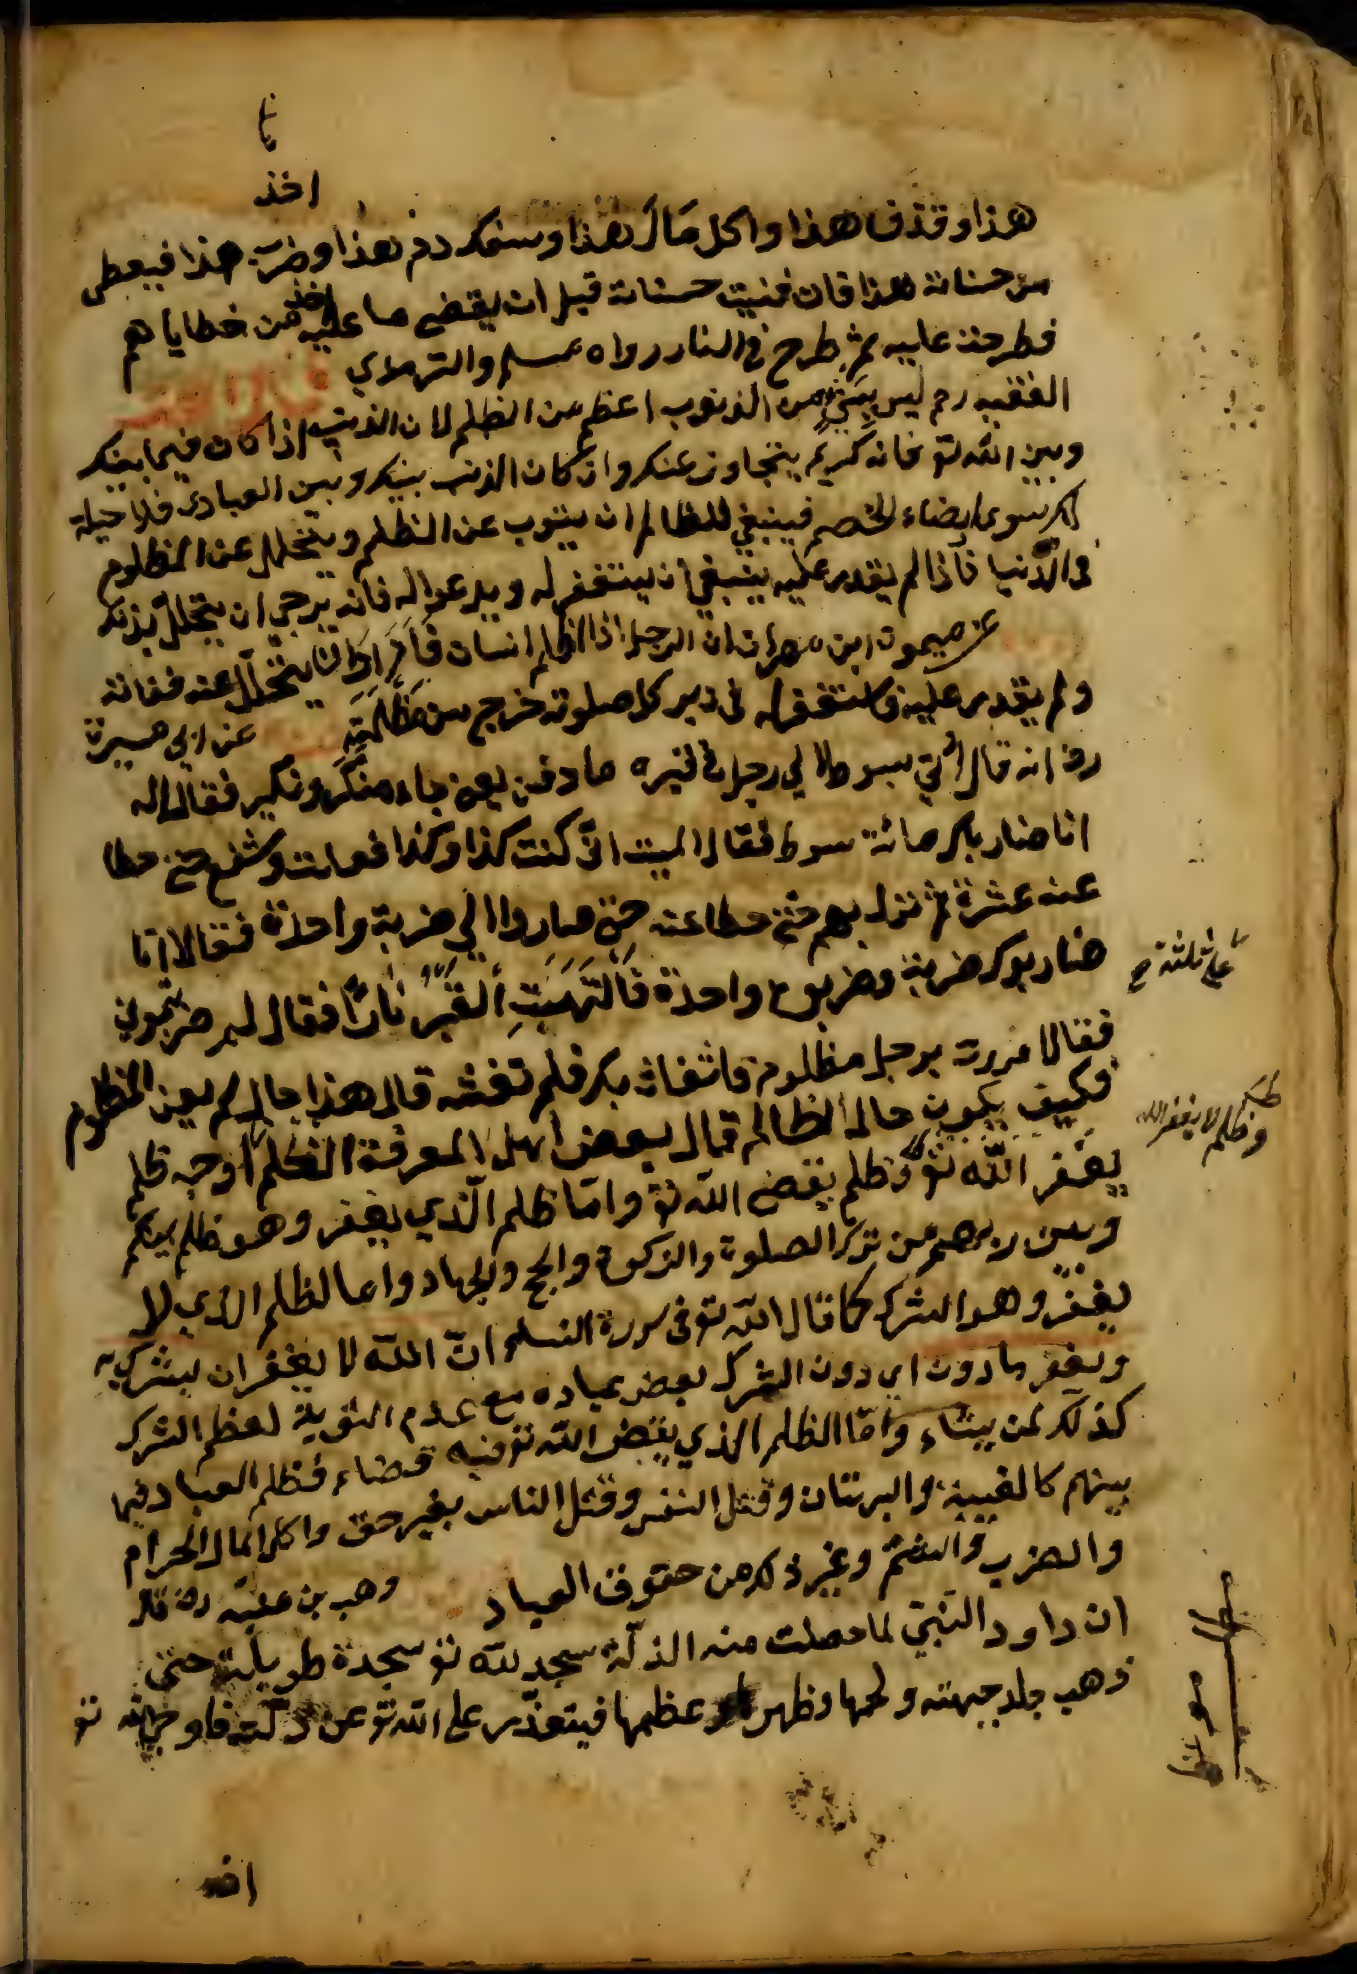 اخذ
هذا وقذف هذا واكل مال هذا وسفك دم هذا وضرب هذا فيعطى
من حسناته هذا فان فنيت حسناته قبل ان يقضى ما عليه اخذ من خطاياهم
فطرحت عليه ثم طرح في النار رواه مسلم والترمذي
الفقيه رح ليس شيء من الذنوب اعظم من الظلم لان الذنب اذا كان فيما بينك
وبين الله تع فانه كريم يتجاوز عنك وان كان الذنب بينك وبين العباد فلا حيلة
لك سوى ارضاء الخصم فينبغي للظالم ان يتوب عن الظلم ويتحلل عن المظلوم
في الدنيا فاذا لم يقدر عليه ينبغي ان يستغفر له ويدعو له فانه يرجى ان يتحلل بذلك
عن ميمون ابن مهران ان الرجل اذا ظلم انسان فاراد ان يتحلل عنه ففاته
ولم يقدر عليه فاستغفر له في دبر كل صلوته خرج من مظلمته عن ابي ميسرة
رض انه قال اتي بسوط الى رجل في قبره ما دفن يعني جاء منكر ونكير فقالا له
انا ضارباك مائة سوط فقال الميت اني كنت كذا وكذا فشفع حتى حطا
عنه عشرة ثم نزل بهم حتى حطا عنه حتى صاروا الى ضربة واحدة فقالا انا
ضاربوك ضربة فضربوه واحدة فالتهبت القبر نارا فقال لم ضربتموني
فقالا مررت برجل مظلوم فاستغاث بك فلم تغثه قال هذا حال لم يعن المظلوم
فكيف يكون حال الظالم قال بعض اهل المعرفة الظلم اوجه ظلم
على ثلثة صح
يغفر الله تع وظلم يقضى الله تع واما ظلم الذي يغفر وهو ظلم بينكم
وظلم لا يغفر الله
وبين ربهم من ترك الصلوة والزكوة والحج والجهاد واما الظلم الذي لا
يغفر وهو الشرك كما قال الله تع في سورة النساء ان الله لا يغفر ان يشرك به
ويغفر ما دون اي دون الشرك بعض عباده مع عدم التوبة لعظم الشرك
كذلك لمن يشاء واما الظلم الذي يقض الله تع فيه قضاء فظلم العباد فيما
بينهم كالغيبة والبهتان وقتل النفس وقتل الناس بغير حق واكل المال الحرام
والضرب والشتم وغير ذلك من حقوق العباد وهب بن منبه رض قال
ان داود النبي لما حصلت منه الذلة سجد لله تع سجدة طويلة حتى
ذهب جلد جبهته ولحمها وظهر عظمها فيتعذر على الله تع عن ذلته فاوحى الله تع